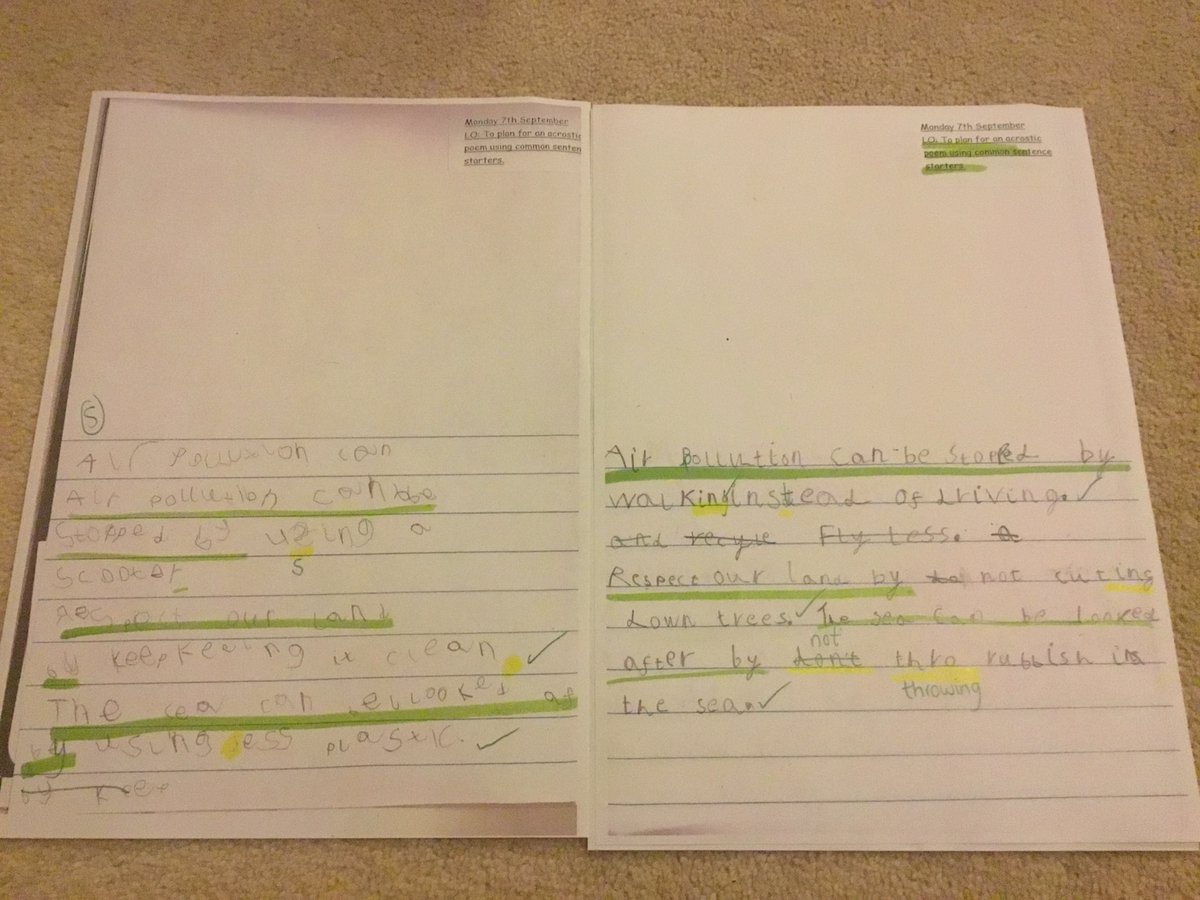 Monday 7th September
LO: To plan for an acrostic
poem using common senten
starters.
S
Air can
Air pollution can be
Stopped by using a
s
Scooter
Respect our land
by keep it clean.
The sea can be looked af
by using less plastic.
by kee
Monday 7th September
LO: To plan for an acrostic
poem using common sentence
starters.
Air pollution can be stopped by
walking instead of driving.
and recycle Fly less.
Respect our land by to not cuting
down trees. The sea can be looked
not
after by don't thro rubbish in
throwing
the sea.